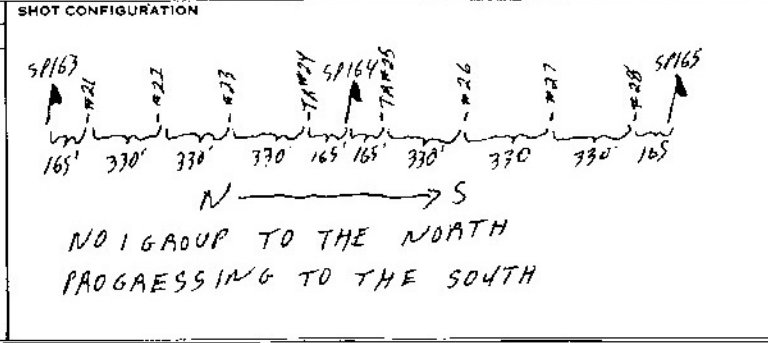 SHOT CONFIGURATION
SP163 #21 #22 #23 TR#24 SP164 TR#25 #26 #27 #28 SP165
165' 330' 330' 330' 165' 165' 330' 330 330' 165
N S
NO 1 GROUP TO THE NORTH
PROGRESSING TO THE SOUTH